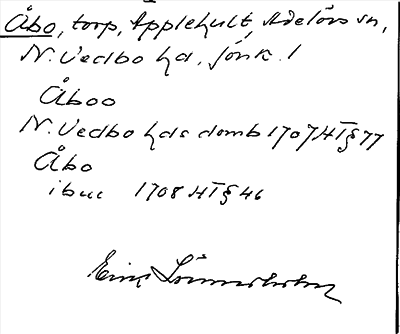 Åbo, torp, Applehult, Adelövs sn,
N. Vedbo hd, Jönk. l
Åboo
N. Vedbo hds domb 1707 HT § 77
Åbo
ibm 1708 HT § 46